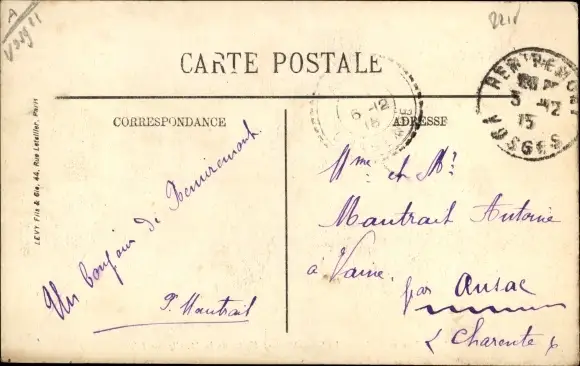 A
V 959 21
221v
CARTE POSTALE
REMIREMONT
3 -12
15
VOSGES
6 -12
15
CORRESPONDANCE
ADRESSE
LEVY Fils & Cie, 44, Rue Letellier, Paris
Un bonjour de Remiremont.
P. Mautrait
Mme et Mr
Mautrait Antoine
à Vaine.
par Ansac
(Charente)